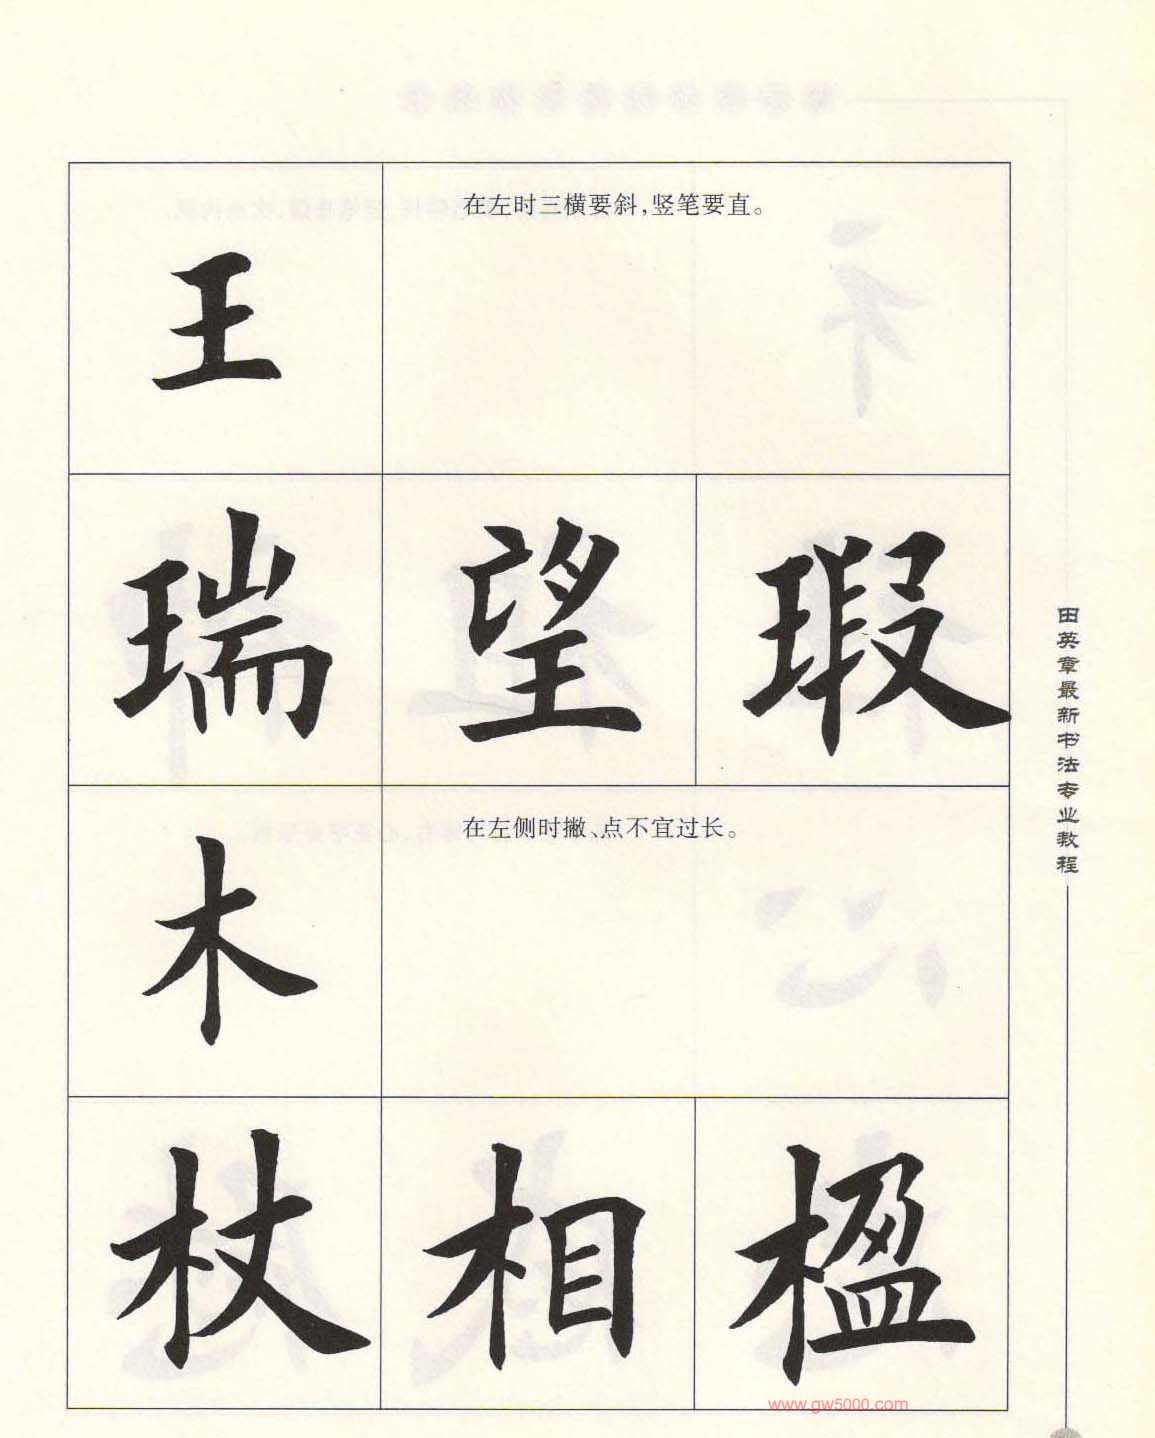 在左时三横要斜,竖笔要直。
王
瑞 望 瑕
在左侧时撇、点不宜过长。
木
杖 相 楹
田英章最新书法专业教程
www.gw5000.com